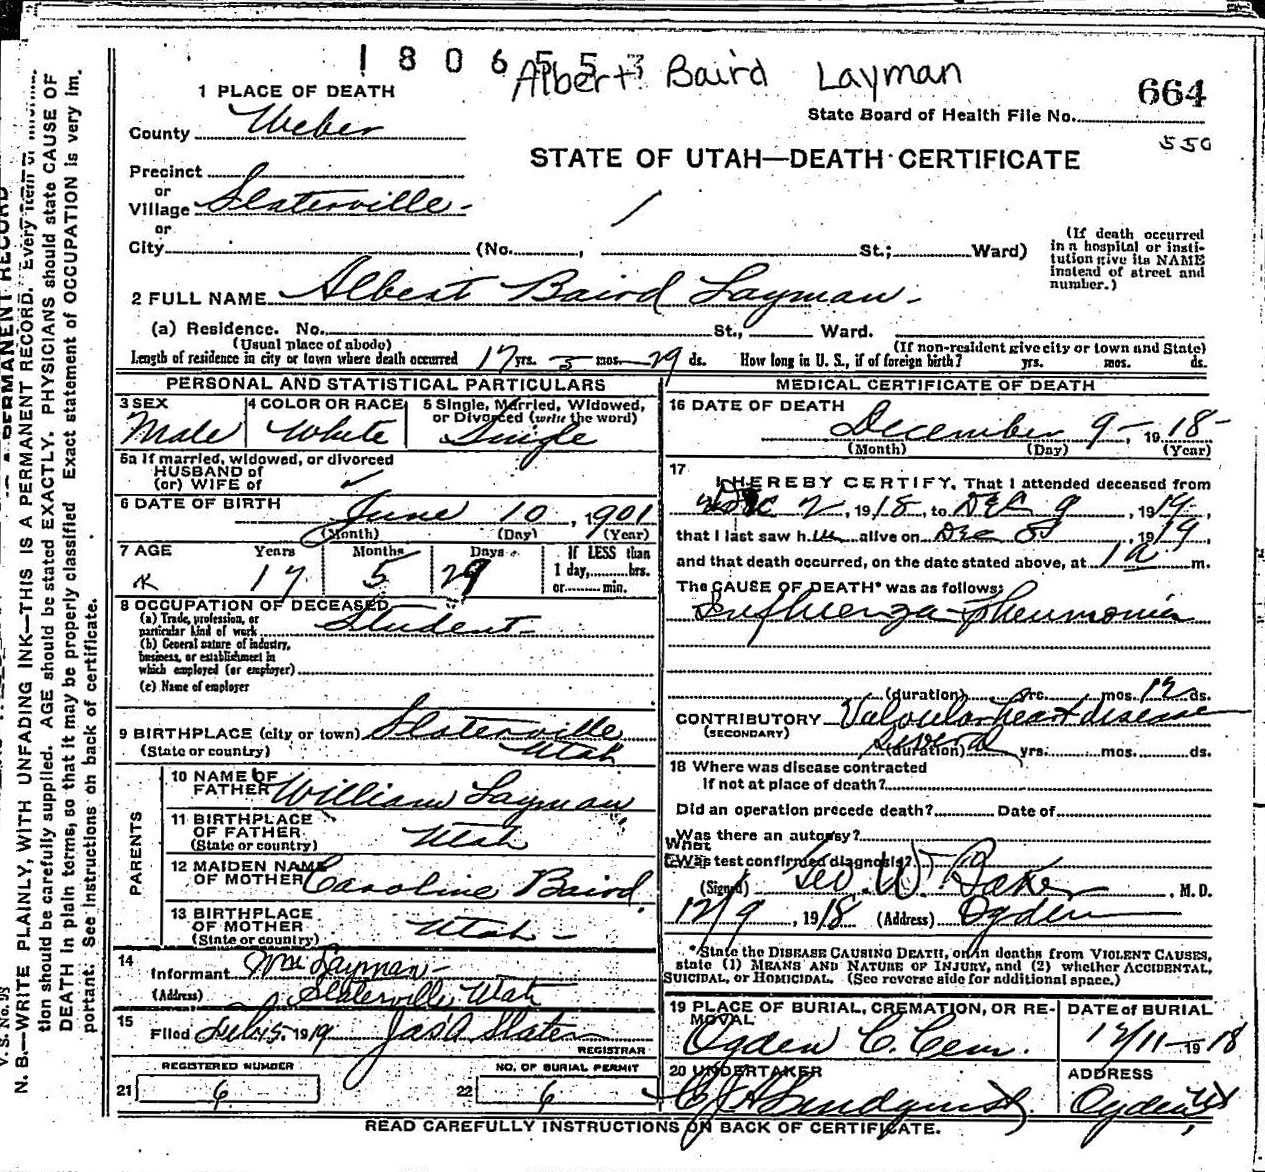 1806553
Albert Baird Layman
664
State Board of Health File No.
550
STATE OF UTAH—DEATH CERTIFICATE
1 PLACE OF DEATH
County Weber
Precinct
or
Village Slaterville
or
City (No. , St.; Ward)
(If death occurred
in a hospital or insti-
tution give its NAME
instead of street and
number.)
2 FULL NAME Albert Baird Layman
(a) Residence. No. St., Ward.
(Usual place of abode) (If non-resident give city or town and State)
Length of residence in city or town where death occurred 17 yrs. 5 mos. 29 ds. How long in U. S., if of foreign birth? yrs. mos. ds.
PERSONAL AND STATISTICAL PARTICULARS
3 SEX
Male
4 COLOR OR RACE
White
5 Single, Married, Widowed,
or Divorced (write the word)
Single
5a If married, widowed, or divorced
HUSBAND of
(or) WIFE of
6 DATE OF BIRTH June 10, 1901
(Month) (Day) (Year)
7 AGE Years Months Days If LESS than
17 5 29 1 day, hrs.
or min.
8 OCCUPATION OF DECEASED
(a) Trade, profession, or
particular kind of work Student
(b) General nature of industry,
business, or establishment in
which employed (or employer)
(c) Name of employer
9 BIRTHPLACE (city or town) Slaterville
(State or country) Utah
PARENTS
10 NAME OF
FATHER William Layman
11 BIRTHPLACE
OF FATHER
(State or country) Utah
12 MAIDEN NAME
OF MOTHER Caroline Baird.
13 BIRTHPLACE
OF MOTHER
(State or country) Utah
14
Informant Wm Layman
(Address) Slaterville Utah
15
Filed 1919 Jas A Slater
REGISTRAR
REGISTERED NUMBER
21 6
NO. OF BURIAL PERMIT
22 6
MEDICAL CERTIFICATE OF DEATH
16 DATE OF DEATH
December 9, 1918
(Month) (Day) (Year)
17
I HEREBY CERTIFY, That I attended deceased from
Dec 2, 1918, to Dec 9, 1919,
that I last saw him alive on Dec 8, 1919,
and that death occurred, on the date stated above, at 1 a m.
The CAUSE OF DEATH* was as follows:
Influenza-Pneumonia
(duration) yrs. mos. 12 ds.
CONTRIBUTORY Valvular heart disease
(SECONDARY)
Several
(duration) yrs. mos. ds.
18 Where was disease contracted
if not at place of death?
Did an operation precede death? Date of
Was there an autopsy?
What
test confirmed diagnosis?
(Signed) Geo. W. Baker, M. D.
12/9, 1918 (Address) Ogden
*State the DISEASE CAUSING DEATH, or in deaths from VIOLENT CAUSES,
state (1) MEANS AND NATURE OF INJURY, and (2) whether ACCIDENTAL,
SUICIDAL, or HOMICIDAL. (See reverse side for additional space.)
19 PLACE OF BURIAL, CREMATION, OR RE-
MOVAL
Ogden C. Cem.
DATE of BURIAL
12/11 1918
20 UNDERTAKER
Lindquist
ADDRESS
Ogden, Ut
READ CAREFULLY INSTRUCTIONS ON BACK OF CERTIFICATE.
N. B.—WRITE PLAINLY, WITH UNFADING INK—THIS IS A PERMANENT RECORD. Every item of
tion should be carefully supplied. AGE should be stated EXACTLY. PHYSICIANS should state CAUSE OF
DEATH in plain terms, so that it may be properly classified. Exact statement of OCCUPATION is very im-
portant. See instructions on back of certificate.